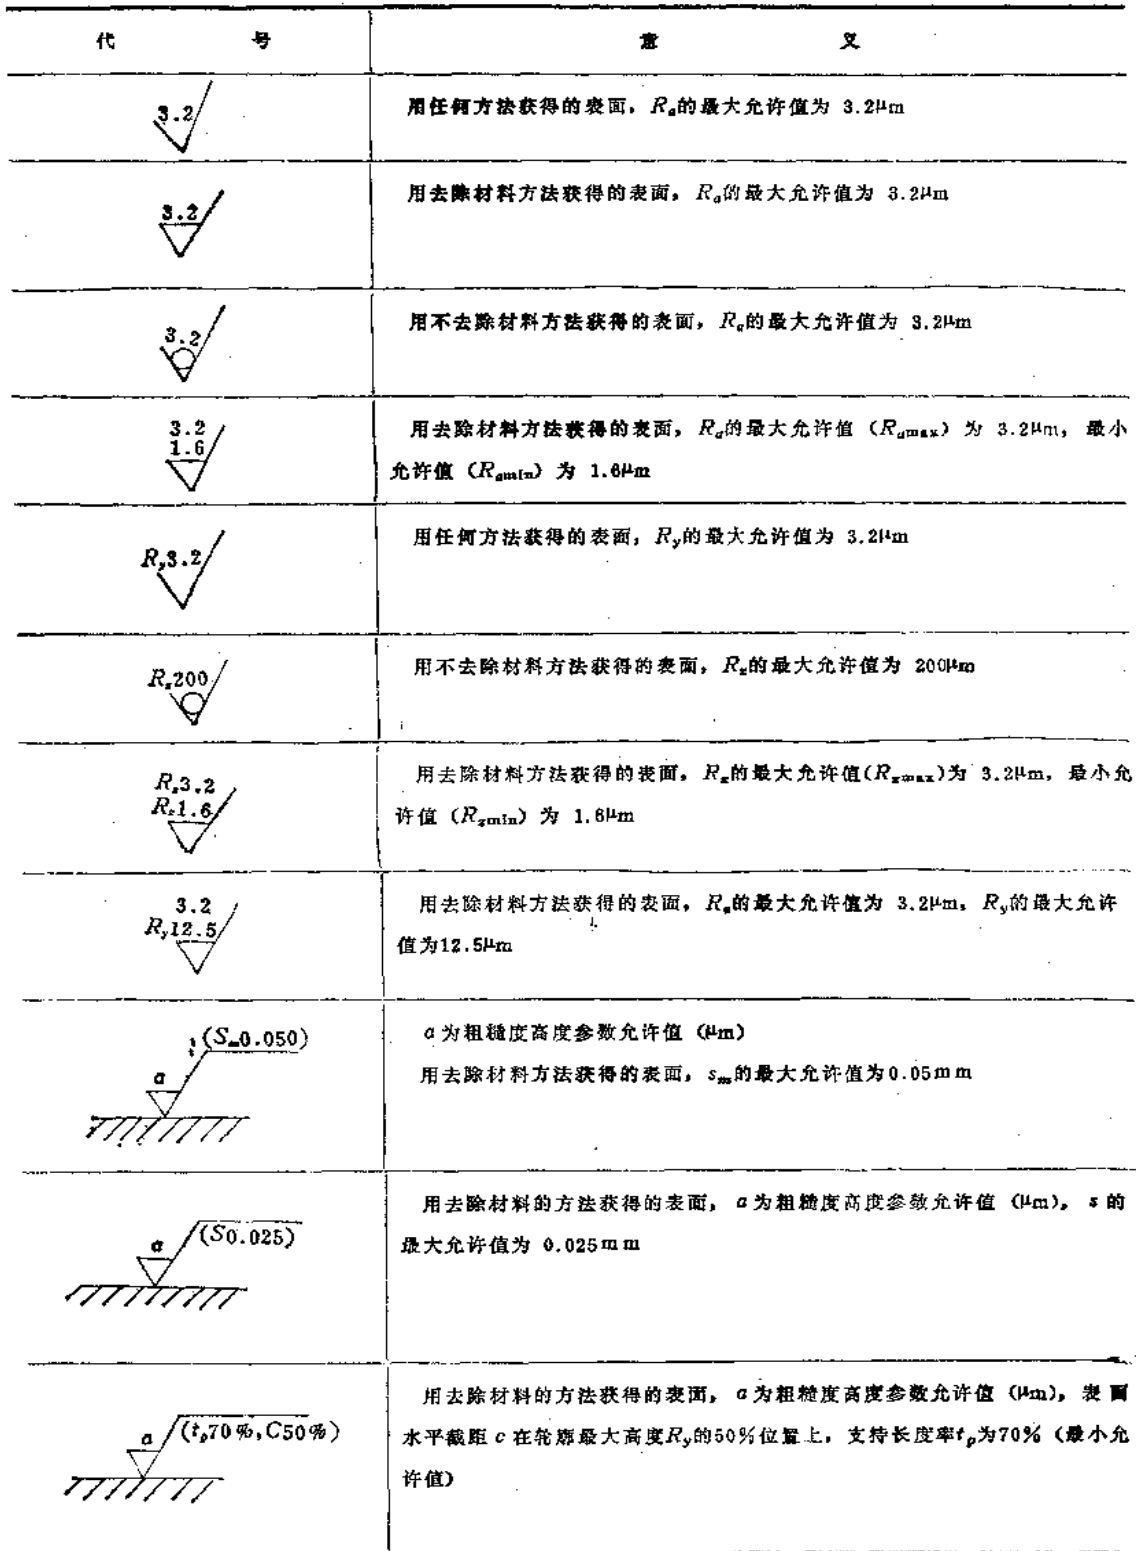 代 号 意 义
3.2
用任何方法获得的表面，Ra的最大允许值为 3.2μm
3.2
用去除材料方法获得的表面，Ra的最大允许值为 3.2μm
3.2
用不去除材料方法获得的表面，Ra的最大允许值为 3.2μm
3.2
1.6
用去除材料方法获得的表面，Ra的最大允许值（Ramax）为 3.2μm，最小
允许值（Ramin）为 1.6μm
Ry3.2
用任何方法获得的表面，Ry的最大允许值为 3.2μm
Rz200
用不去除材料方法获得的表面，Rz的最大允许值为 200μm
Rz3.2
Rz1.6
用去除材料方法获得的表面，Rz的最大允许值(Rzmax)为 3.2μm，最小允
许值（Rzmin）为 1.6μm
3.2
Ry12.5
用去除材料方法获得的表面，Ra的最大允许值为 3.2μm，Ry的最大允许
值为12.5μm
(Sm0.050)
a
a为粗糙度高度参数允许值（μm）
用去除材料方法获得的表面，sm的最大允许值为0.05mm
(S0.025)
a
用去除材料的方法获得的表面，a为粗糙度高度参数允许值（μm），s的
最大允许值为 0.025mm
(tp70%,C50%)
a
用去除材料的方法获得的表面，a为粗糙度高度参数允许值（μm），表面
水平截距c在轮廓最大高度Ry的50%位置上，支持长度率tp为70%（最小允
许值）